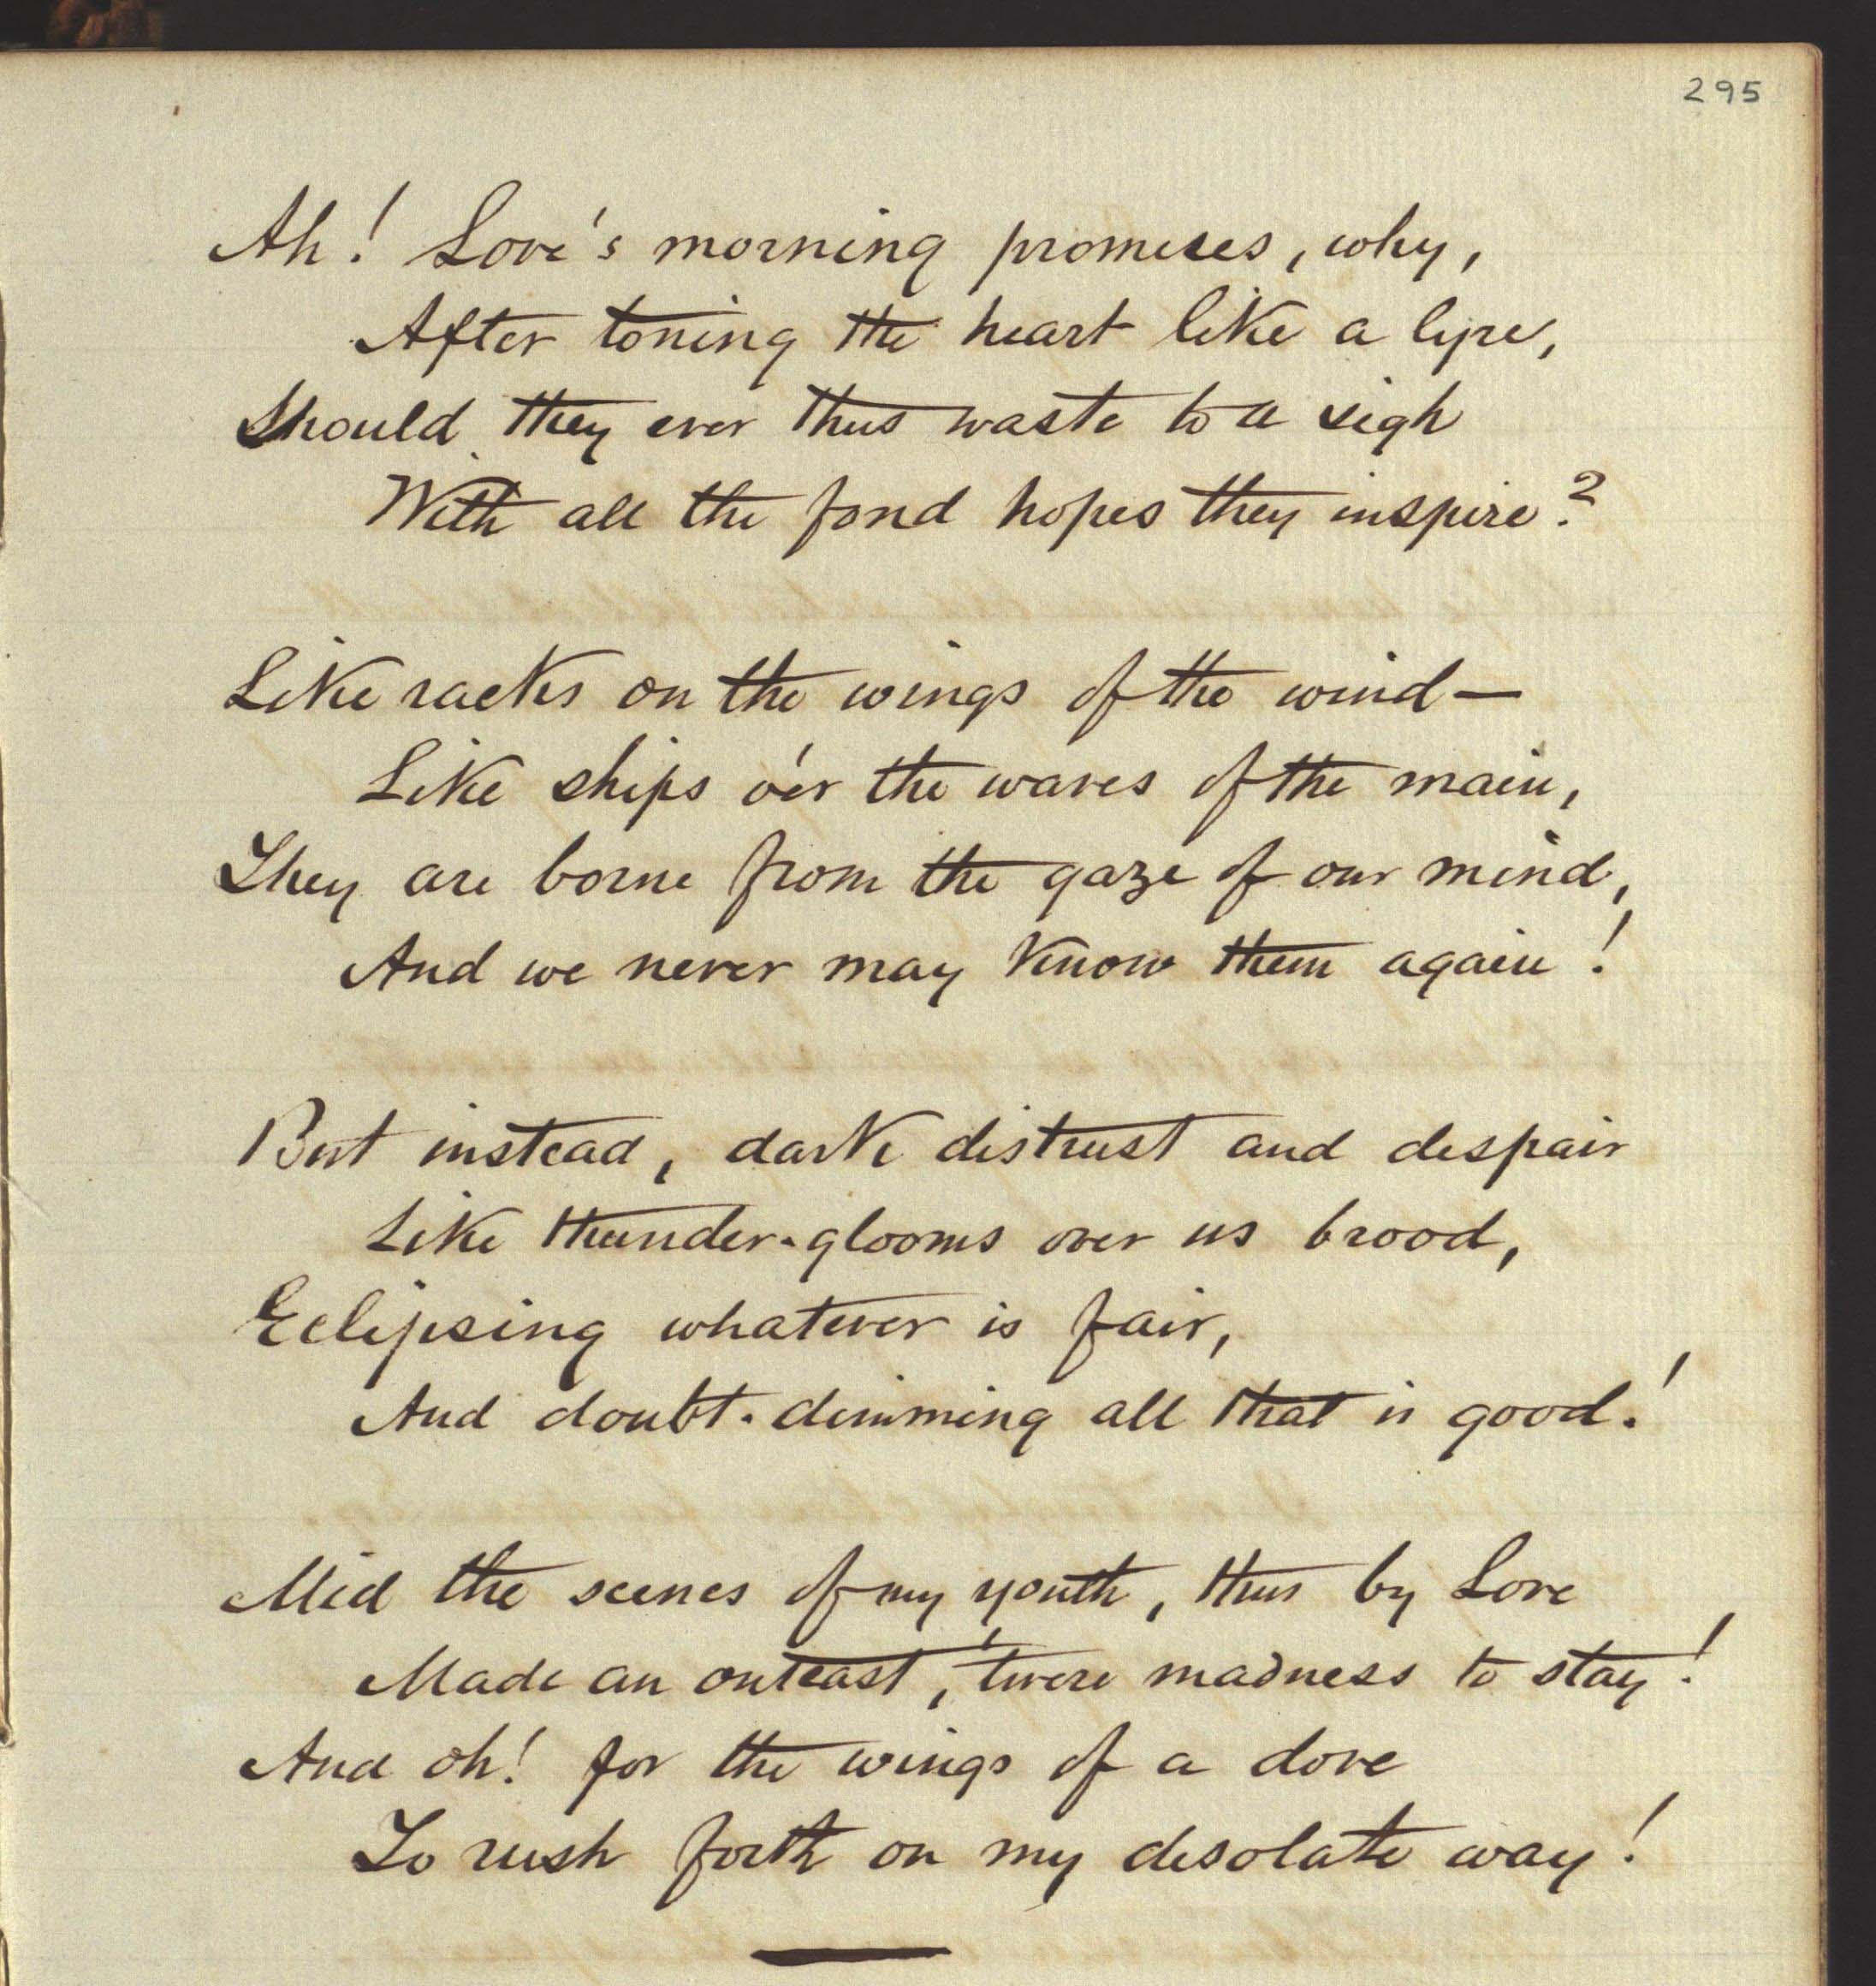 295
Ah! Love's morning promises, why,
After toning the heart like a lyre,
Should they ever thus waste to a sigh
With all the fond hopes they inspire?
Like racks on the wings of the wind—
Like ships o'er the waves of the main,
They are borne from the gaze of our mind,
And we never may know them again!
But instead, dark distrust and despair
Like thunder-glooms over us brood,
Eclipsing whatever is fair,
And doubt-dimming all that is good!
Mid the scenes of my youth, thus by Love
Made an outcast, 'twere madness to stay!
And oh! for the wings of a dove
To rush forth on my desolate way!